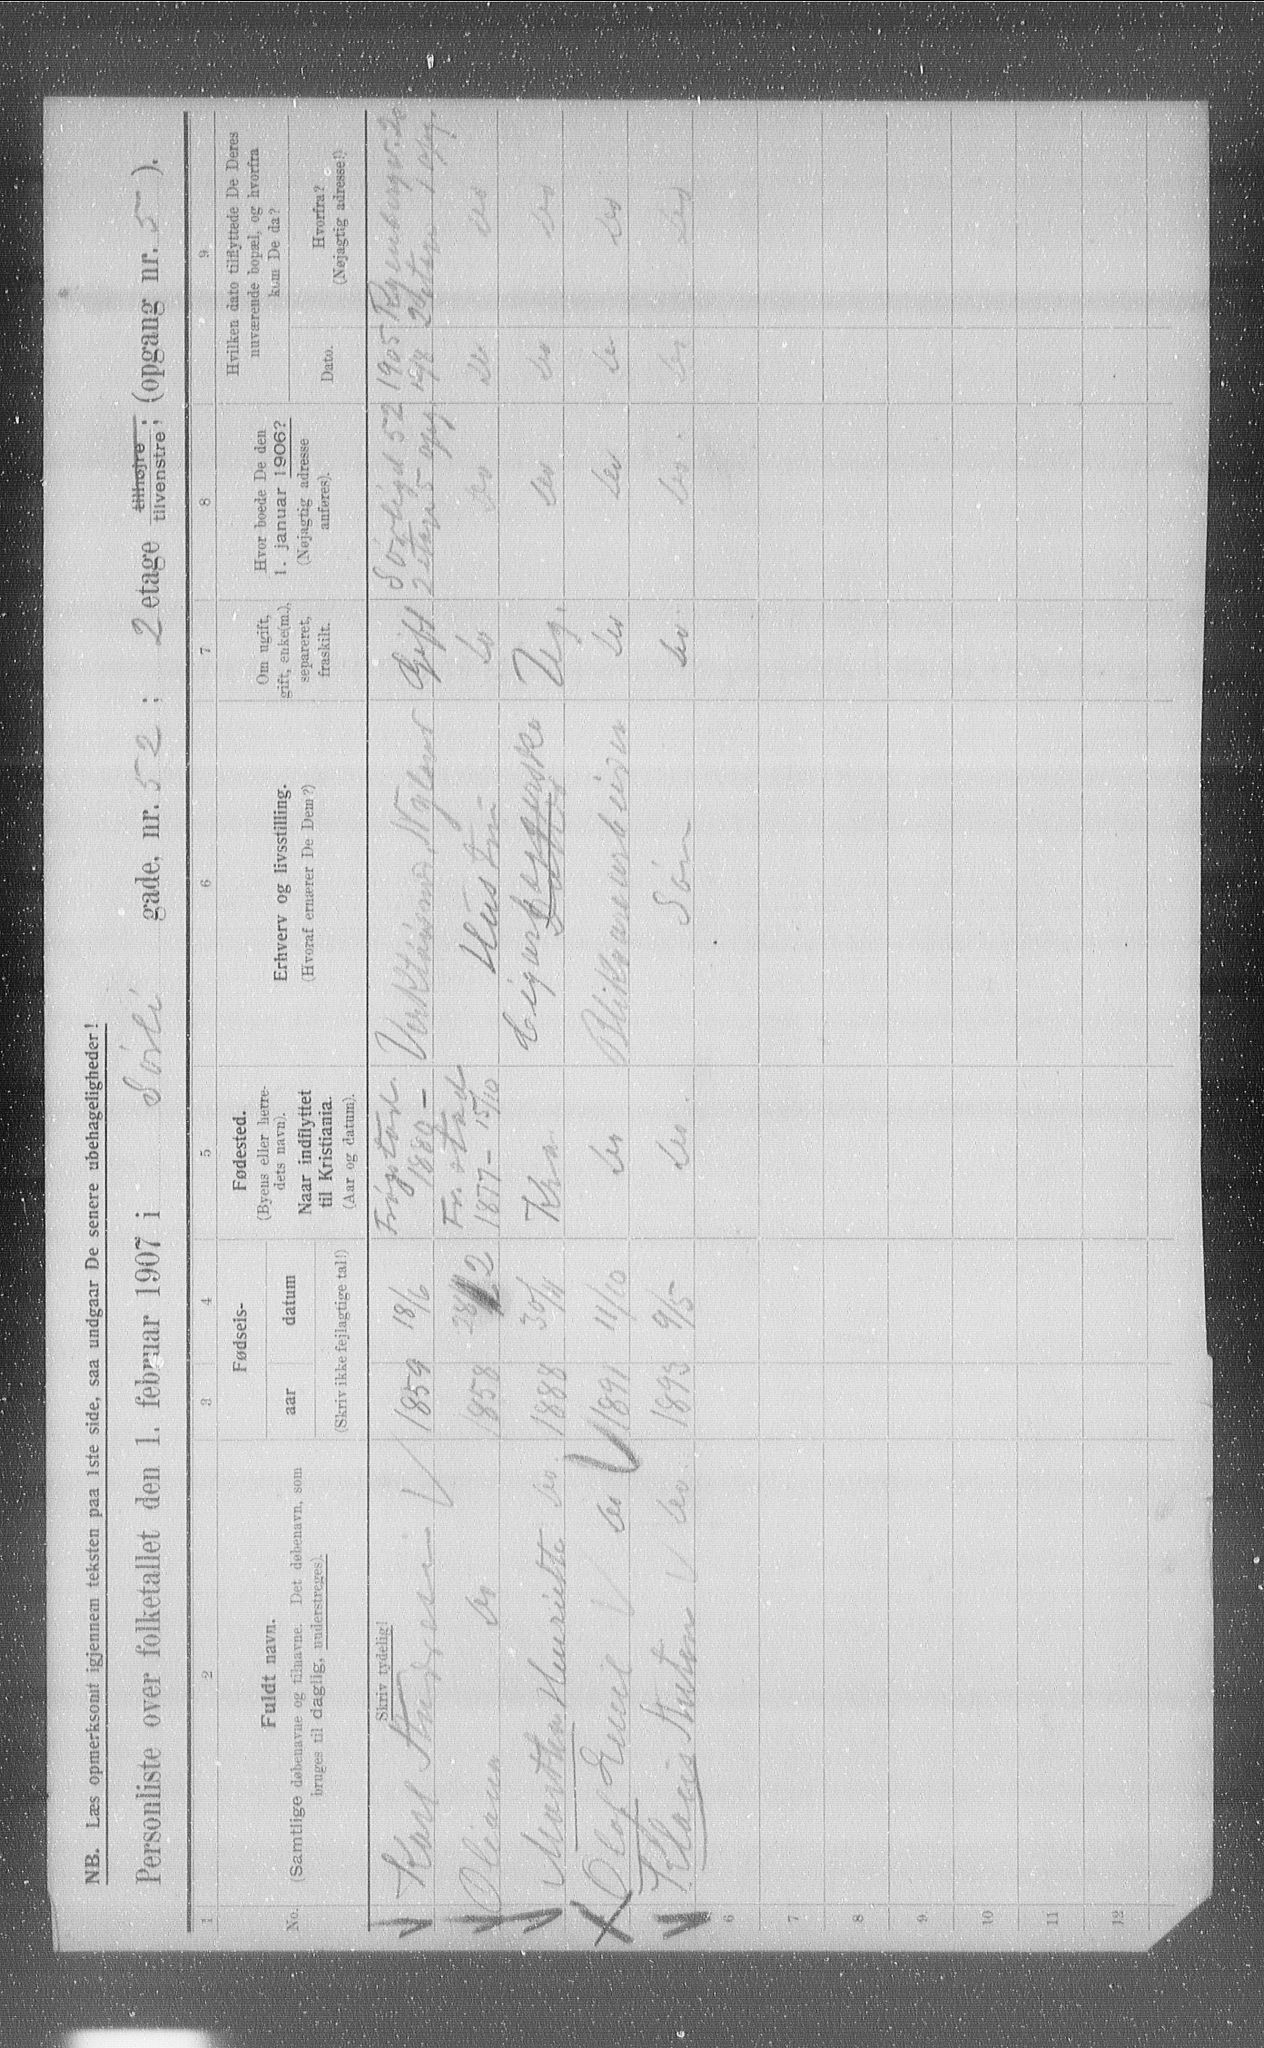 NB. Læs opmerksomt igjennem teksten paa 1ste side, saa undgaar De senere ubehageligheder!
Personliste over folketallet den 1. februar 1907 i Sørli gade, nr. 52 ; 2 etage tilhøjre ; tilvenstre ; (opgang nr. 5 ).
1 2 3 4 5 6 7 8 9
No.
Fuldt navn.
(Samtlige døbenavne og tilnavne. Det døbenavn, som
bruges til daglig, understreges).
Fødsels-
aar datum
(Skriv ikke fejlagtige tal!)
Fødested.
(Byens eller herre-
dets navn).
Naar indflyttet
til Kristiania.
(Aar og datum).
Erhverv og livsstilling.
(Hvoraf ernærer De Dem?)
Om ugift,
gift, enke(m.),
separeret,
fraskilt.
Hvor boede De den
1. januar 1906?
(Nøjagtig adresse
anføres).
Hvilken dato tilflyttede De Deres
nuværende bopæl, og hvorfra
kom De da?
Dato.
Hvorfra?
(Nøjagtig adresse!)
Skriv tydelig!
Karl Andresen 1859 18/6 1889 - Gift Sørligd 52 1905
2 etas 5 opg 1 opg.
Oliana do 1858 2 1877 - 15/10 Hustru do do do do
Martha Henriette do. 1888 30/11 Kra Ug. do do do
Olaf Emil do 1891 11/10 do do do do do
Klaus Anton do. 1893 9/5 do. Søn do. do. do do
6
7
8
9
10
11
12